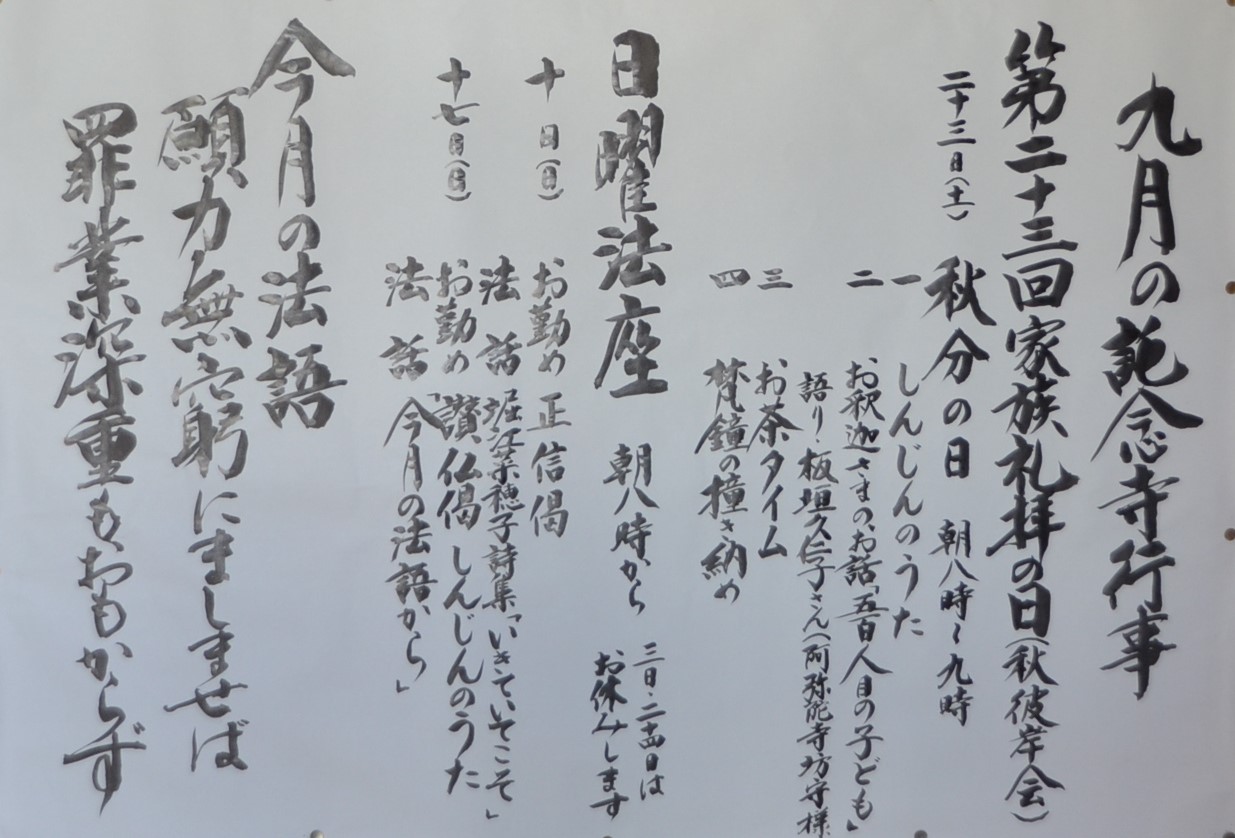 九月の託念寺行事
第二十三回家族礼拝の日(秋彼岸会)
二十三日(土) 秋分の日 朝八時~九時
一 しんじんのうた
二 お釈迦さまのお話「五百人目の子ども」
語り・板垣久仁子さん(阿弥陀寺坊守様
三 お茶タイム
四 梵鐘の撞き納め
日曜法座 朝八時から 三日・二十四日は
お休みします
十日(日) お勤め 正信偈
法話 堀江菜穂子詩集「いきていてこそ」
十七日(日) お勤め 讃仏偈 しんじんのうた
法話 「今月の法語から」
今月の法語
願力無窮にましませば
罪業深重もおもからず